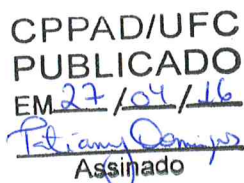 CPPAD/UFC
PUBLICADO
EM 27/04/16
Tatiany Domingos
Assinado